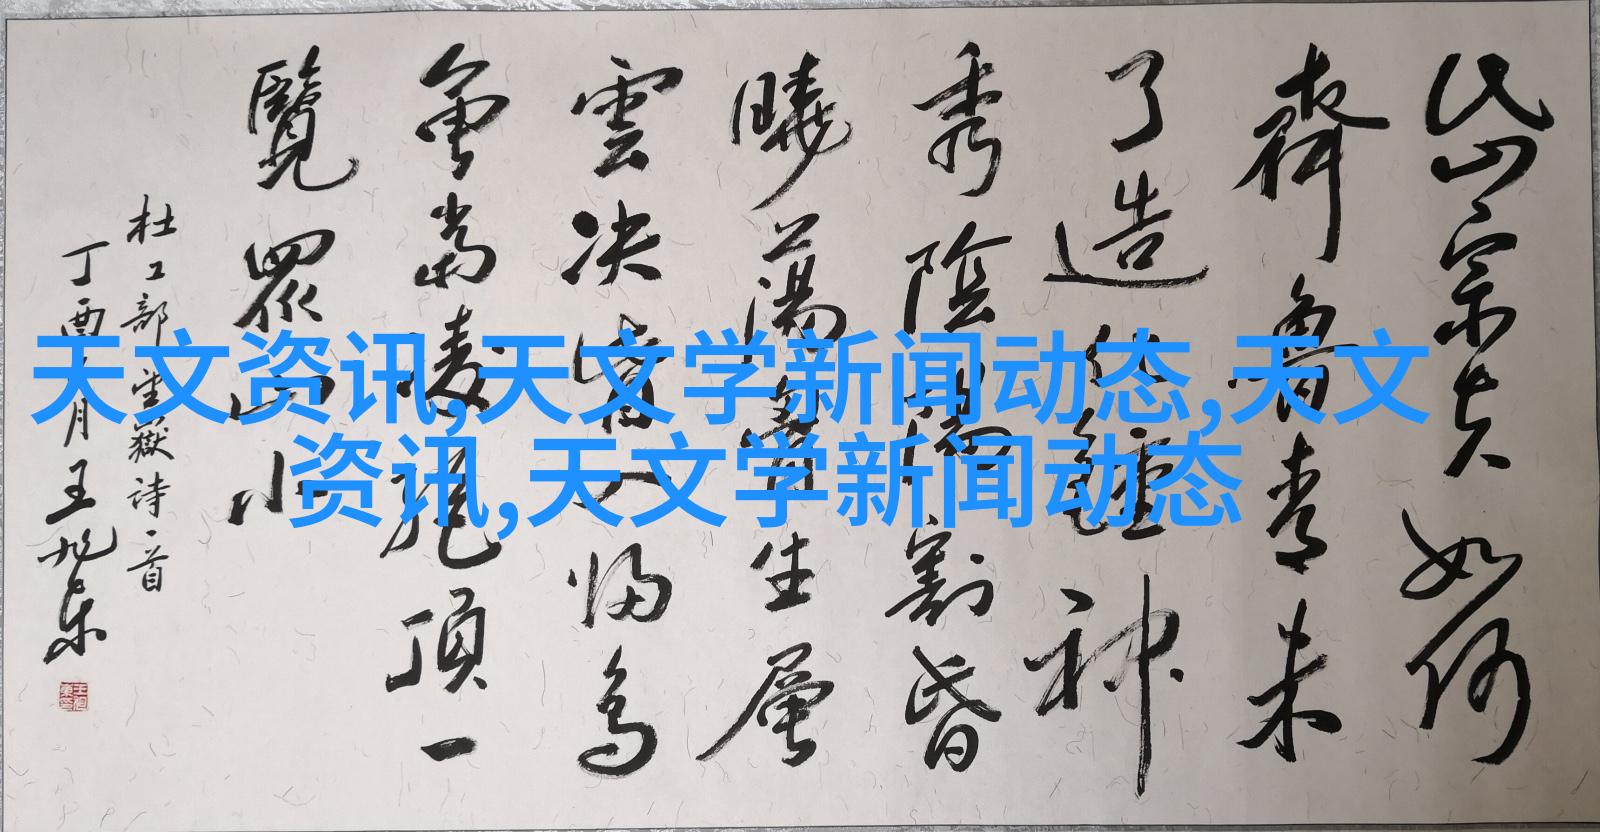 岱宗夫如何
齊魯青未
了造化鍾神
秀陰陽割昏
曉蕩胷生層
雲決眥入歸鳥
會當凌絕頂一
覽眾山小
杜工部望嶽詩一首
丁酉月王旭东
天文资讯,天文学新闻动态,天文
资讯,天文学新闻动态